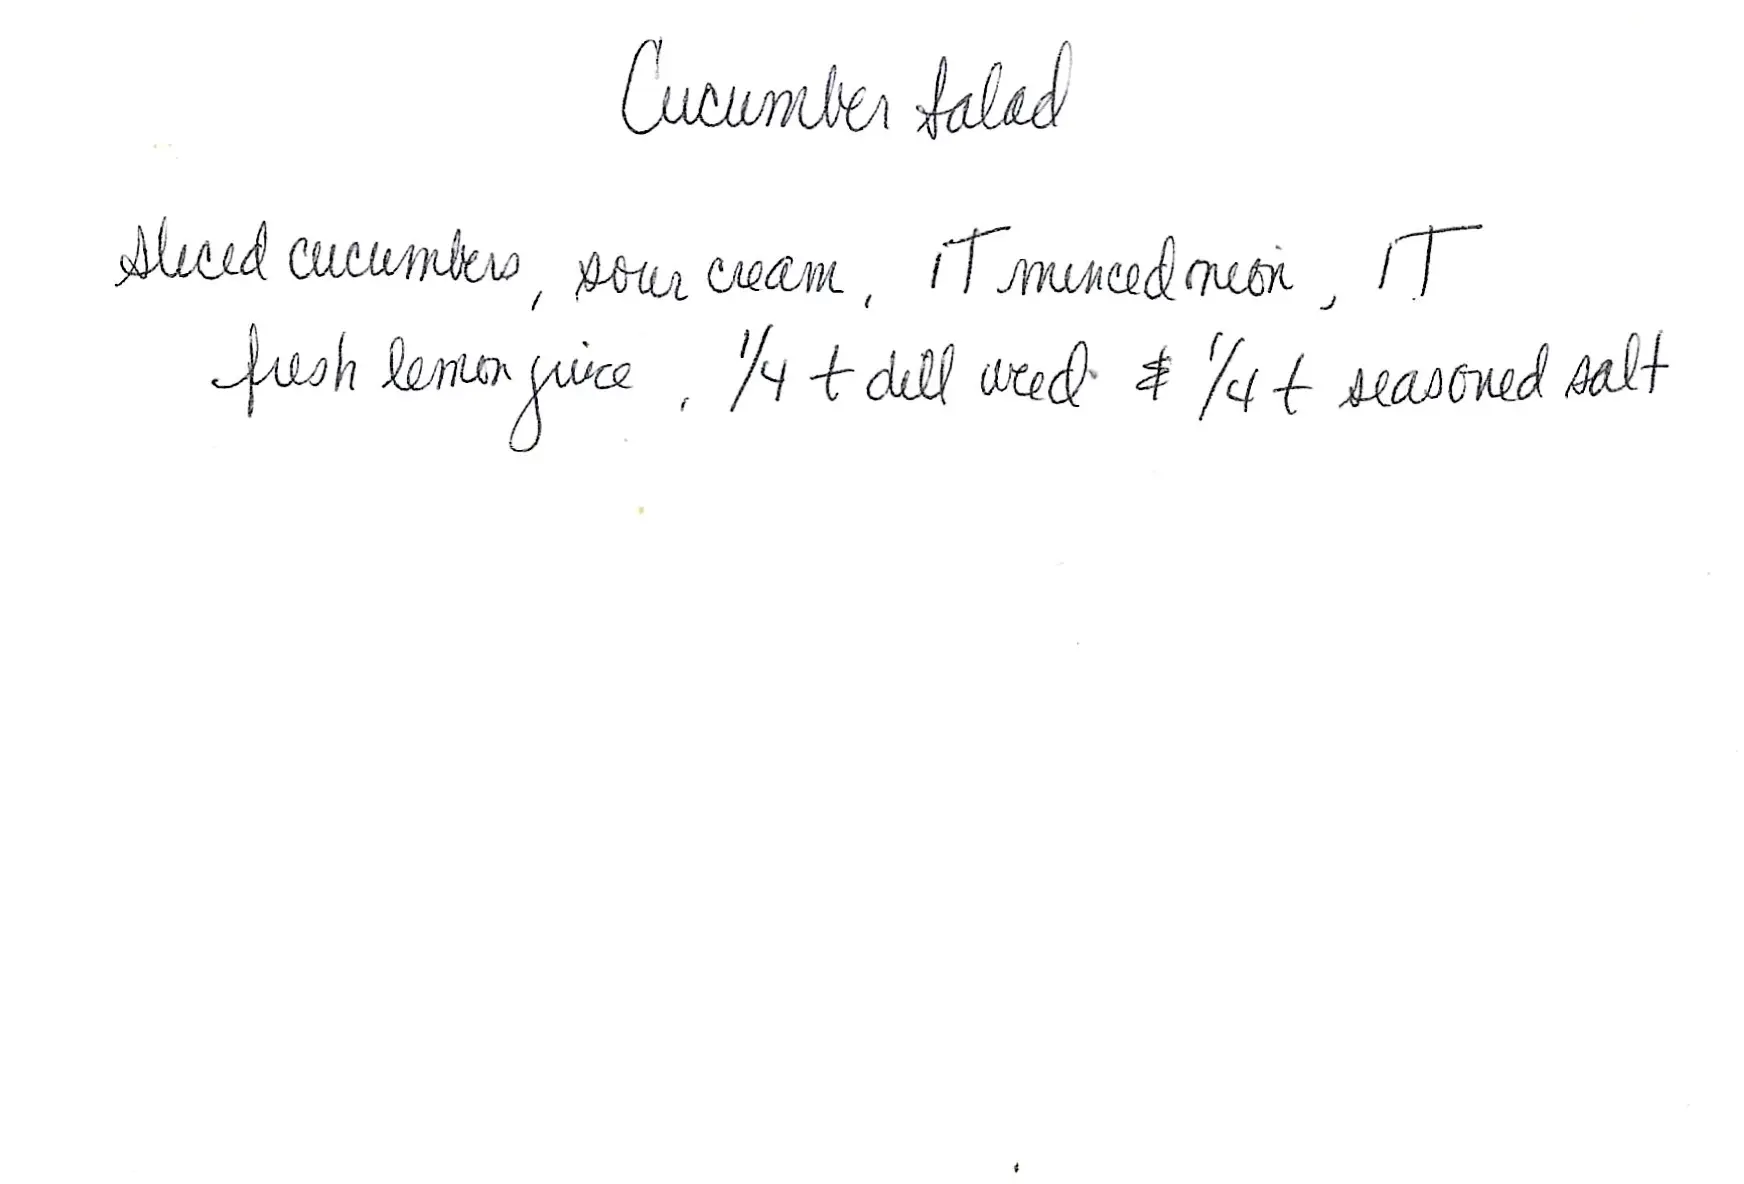 Cucumber Salad
sliced cucumbers, sour cream, 1T minced onion, 1T
fresh lemon juice, 1/4 t dill weed & 1/4 t seasoned salt